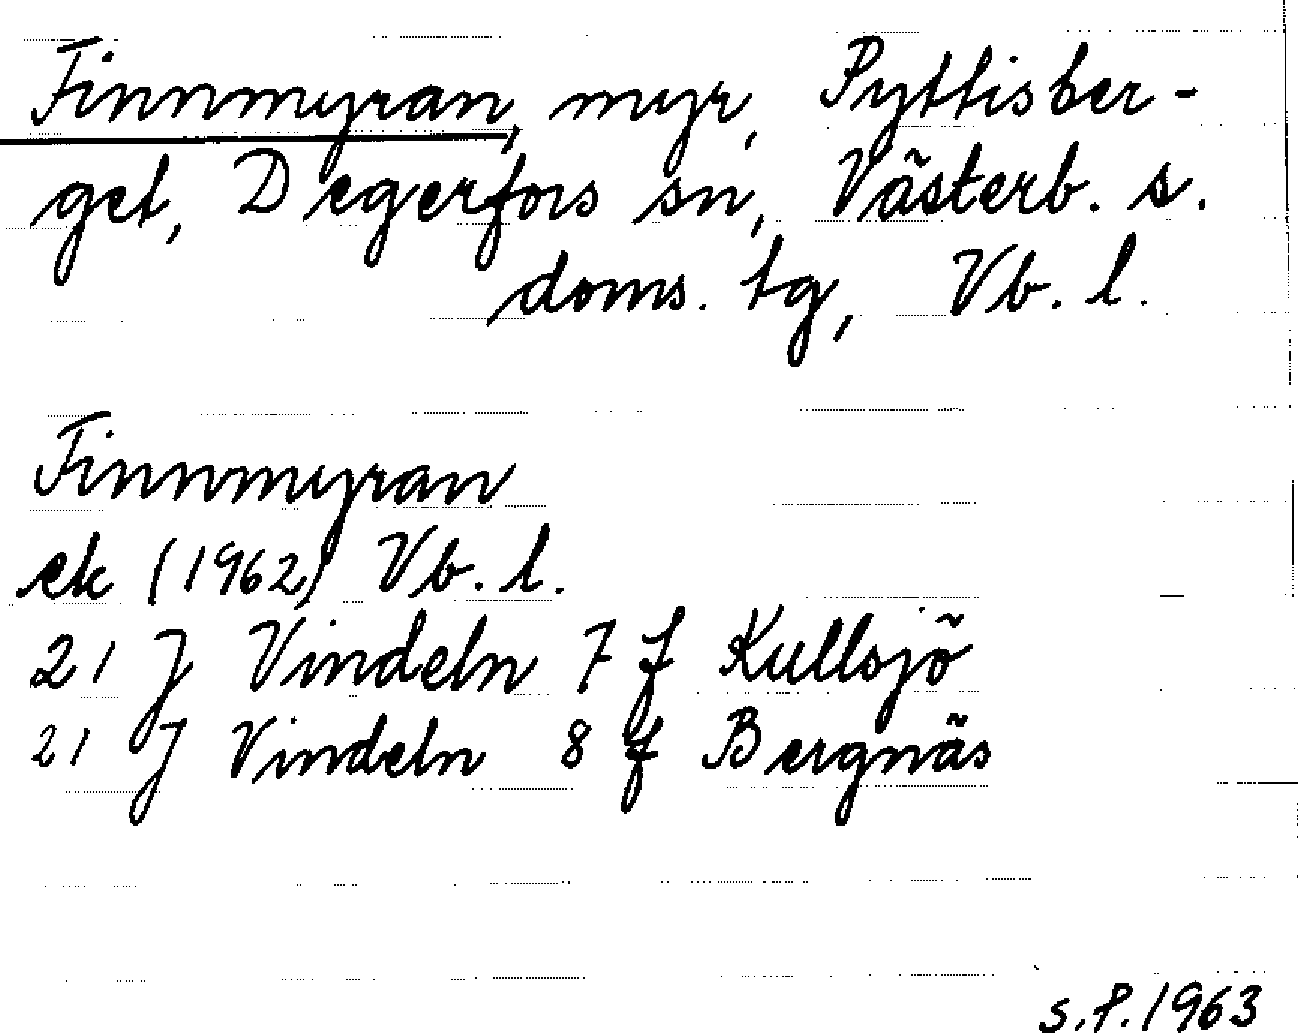 Finnmyran, myr, Pyttisber-
get, Degerfors sn, Västerb. s.
doms. tg, Vb. l.
Finnmyran
ek (1962) Vb. l.
21 J Vindeln 7 f Kullsjö
21 J Vindeln 8 f Bergnäs
s.P.1963